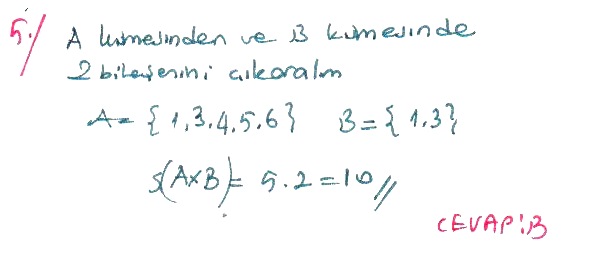 5./ A kümesinden ve B kümesinde
2 bileşenini çıkaralım
A = { 1,3,4,5,6} B = { 1,3}
s(AxB) = 5.2=10//
CEVAP: B